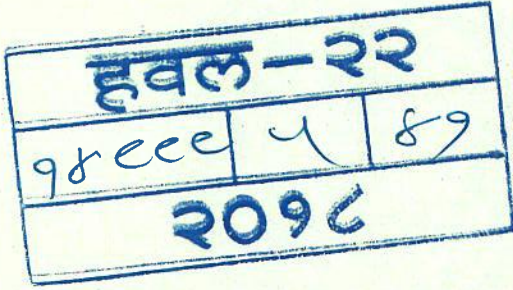 हवल-२२
१४९९९ ५ ४१
२०१८